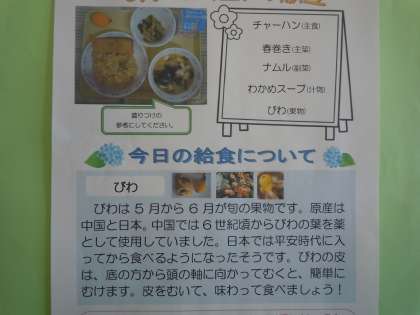 チャーハン(主食)
春巻き(主菜)
ナムル(副菜)
わかめスープ(汁物)
びわ(果物)
盛りつけの
参考にしてください。
今日の給食について
びわ
びわは5月から6月が旬の果物です。原産は
中国と日本。中国では6世紀頃からびわの葉を薬
として使用していました。日本では平安時代に入
ってから食べるようになったそうです。びわの皮
は、底の方から頭の軸に向かってむくと、簡単に
むけます。皮をむいて、味わって食べましょう！